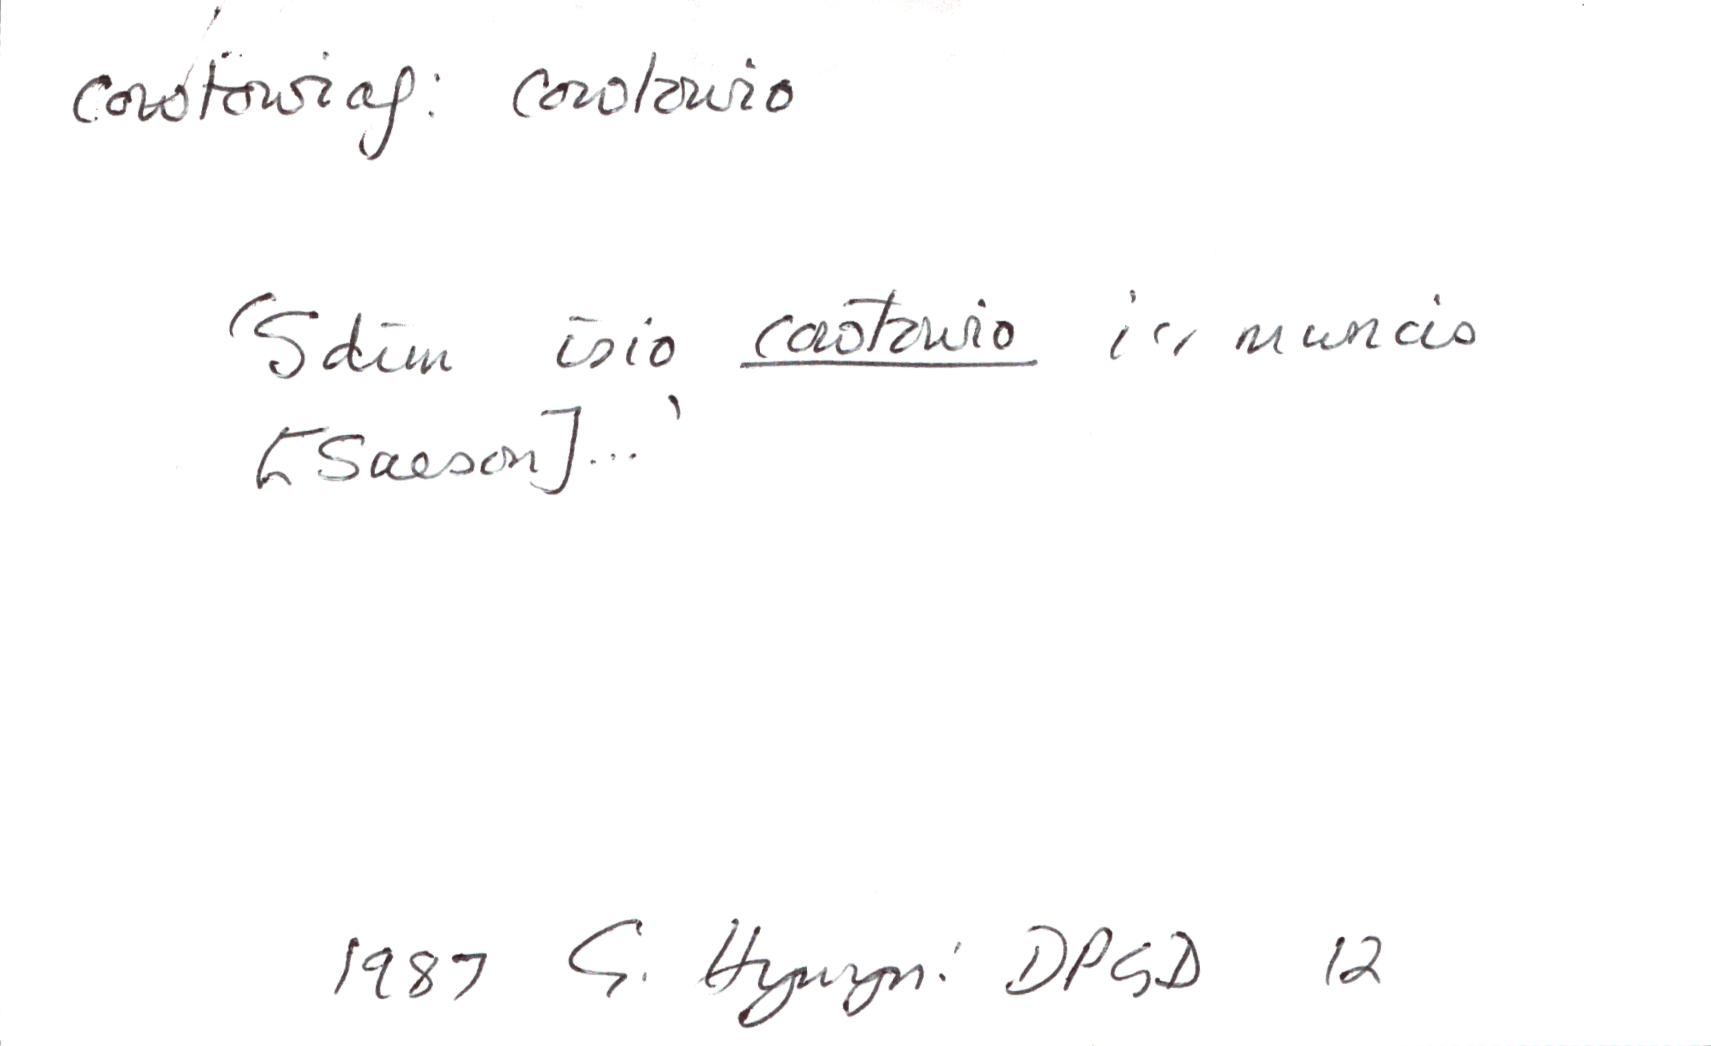 cowtowiaf: cowtowio
'Sdim isio cowtowio i'r muncis
[Saeson]...'
1987 G. Hywyn: DPGD 12